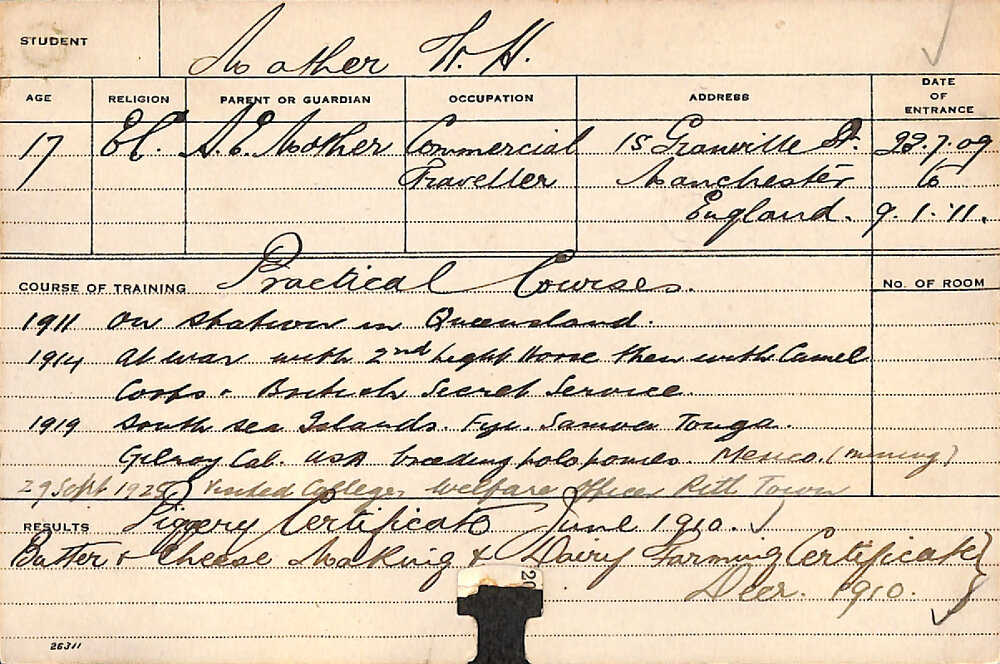 STUDENT Mother W. H.
AGE RELIGION PARENT OR GUARDIAN OCCUPATION ADDRESS DATE OF ENTRANCE
17 E.C. A. E. Mother Commercial 15 Granville St. 22.7.09
Traveller Manchester to
England. 9.1.11.
COURSE OF TRAINING Practical Courses. No. OF ROOM
1911 On station in Queensland.
1914 At war with 2nd Light Horse then with Camel
Corps & British Secret Service.
1919 South Sea Islands. Fiji. Samoa Tonga.
Gilroy Cal. USA breeding polo ponies. Mexico. (mining)
29 Sept Visited College, Welfare Officer Town
RESULTS Piggery Certificate June 1910.
Butter & Cheese Making & Dairy Farming Certificate
Decr. 1910.
20
26311